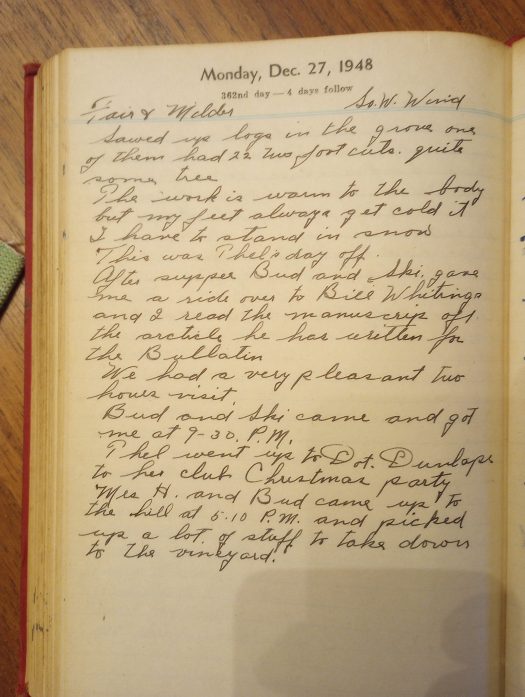 Monday, Dec. 27, 1948
362nd day — 4 days follow
Fair & Milder So. W. Wind
Sawed up logs in the grove one
of them had 22 two foot cuts. quite
some tree
The work is warm to the body
but my feet always get cold if
I have to stand in snow
This was Thel's day off.
After supper Bud and Ski. gave
me a ride over to Bill Whitings
and I read the manuscrip off
the arcticle he has written for
the Bullatin
We had a very pleasant two
hours visit.
Bud and Ski came and got
me at 9-30. P.M.
Thel went up to Dot. Dunlaps
to her club Christmas party
Mrs H. and Bud came up to
the hill at 5.10 P.M. and picked
up a lot of stuff to take down
to the vineyard.